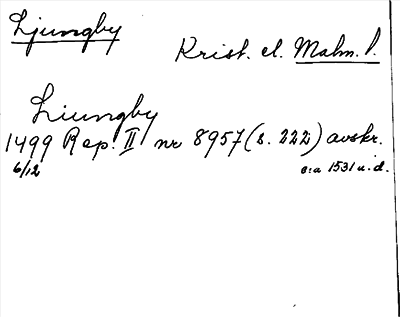 Ljungby
Krist. el. Malm. l.
Liungby
1499 Rep. II nr 8957 (s. 222) avskr.
6/12 c:a 1531 u.d.